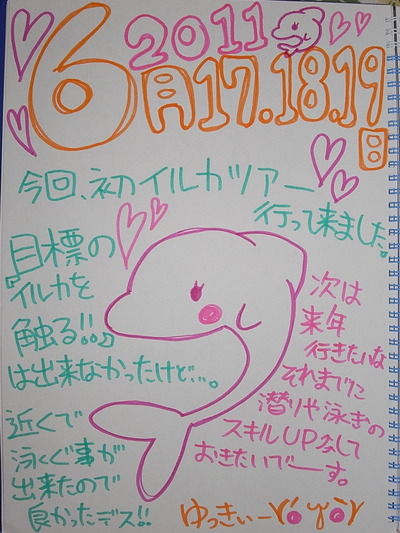 2011
6月17.18.19日
今回、初イルカツアー
行って来ました。
目標の
『イルカを
触る!!』
は出来なかったけど…。
近くで
泳ぐ事が
出来たので
良かったデス!!
次は
来年
行きたいな
それまでに
潜りや泳ぎの
スキルUPして
おきたいでーす。
ゆっきぃー